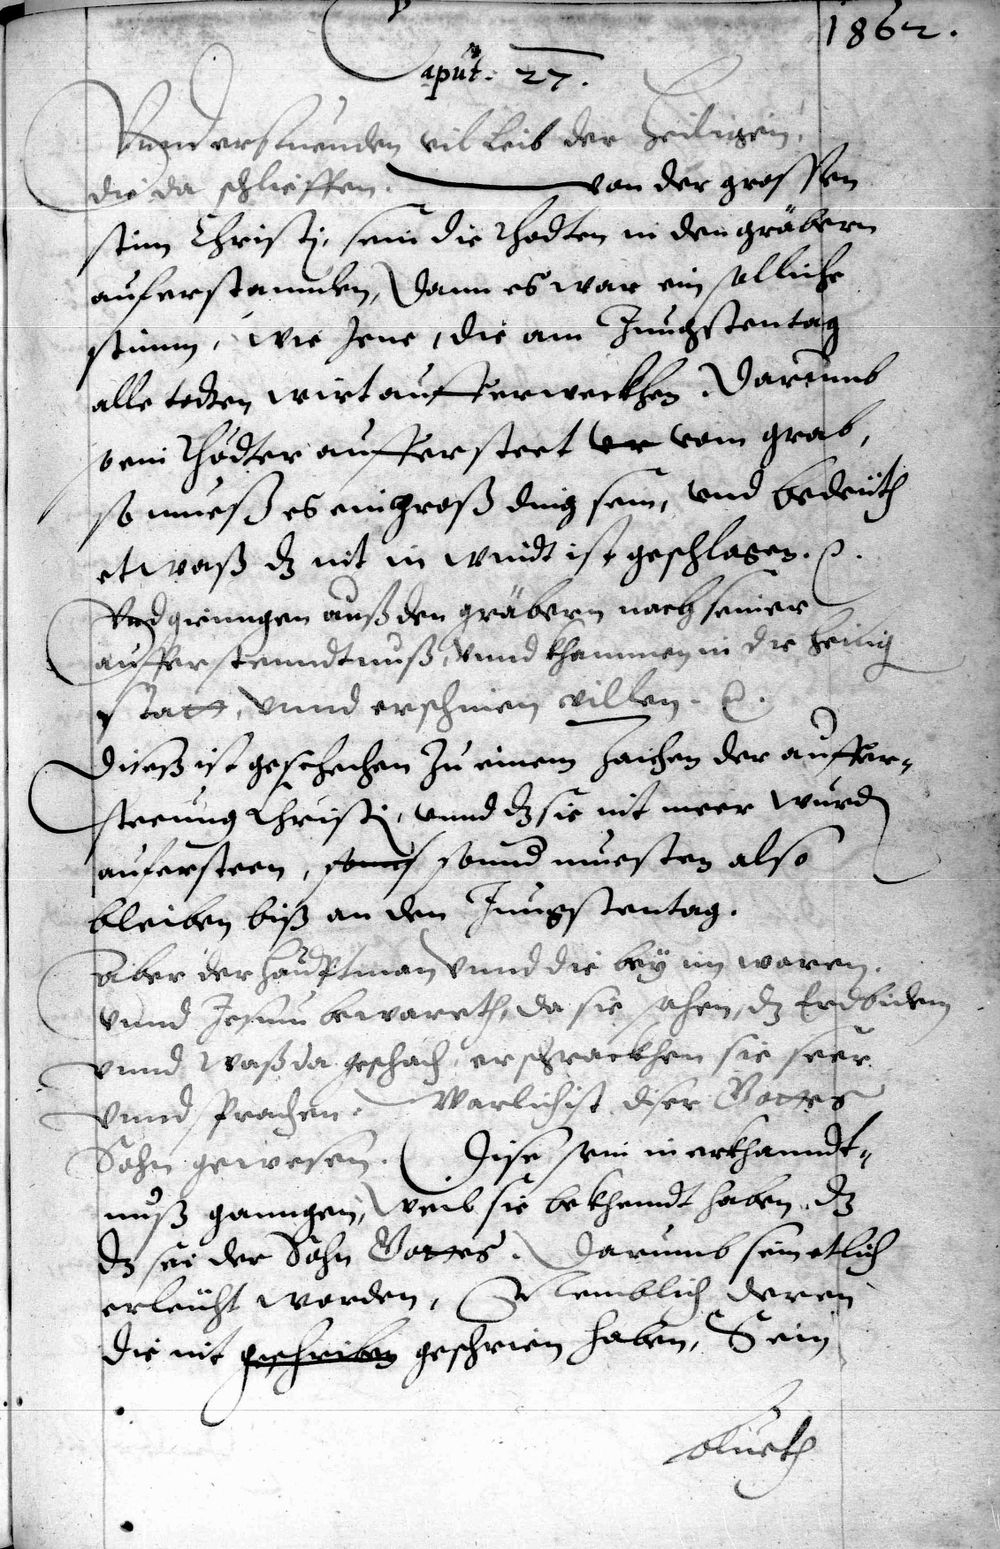 1862.
Caput. 27.
Unnd erstuenden vil Leib der Heiligen,
die da schlieffen. von der grossen
stim Christj, sein die Thodten in den gräbern
auferstannden, Dann es war ein solliche
stimm, wie Jene, die am Jüngstentag
alle todten wirt aufferweckhen. Darumb
so ein Thodter auffersteet er vom grab,
so mueß es ein groß ding sein, und bedeüth
etwaß dz nit in windt ist geschlagen.
Und giengen auß den gräbern nach seiner
aufferstenndtnuß, unnd khammen in die heilig
Statt, unnd erschinen villen.
Diseß ist geschechen zu einem Zaichen der auffer-
steeung Christj, unnd dz sie nit meer wurd
aufersteen, sonnd muesten also
bleiben biß an den Jungstentag.
Aber der Hauptman unnd die bey im waren.
unnd Jesum bewareth, da sie sahen, dz Erdbidem
unnd waß da geschach, erschrackhen sie seer.
unnd sprachen. Warlich ist diser Gottes
Sohn gewesen. Dise sein in erkhanndt-
nuß ganngen, weil sie bekhendt haben, dz
dz sei der Sohn Gottes. Darumb sein etlich
erleücht worden, Nemblich deren
die nit geschriben geschrien haben, Sein
blueth